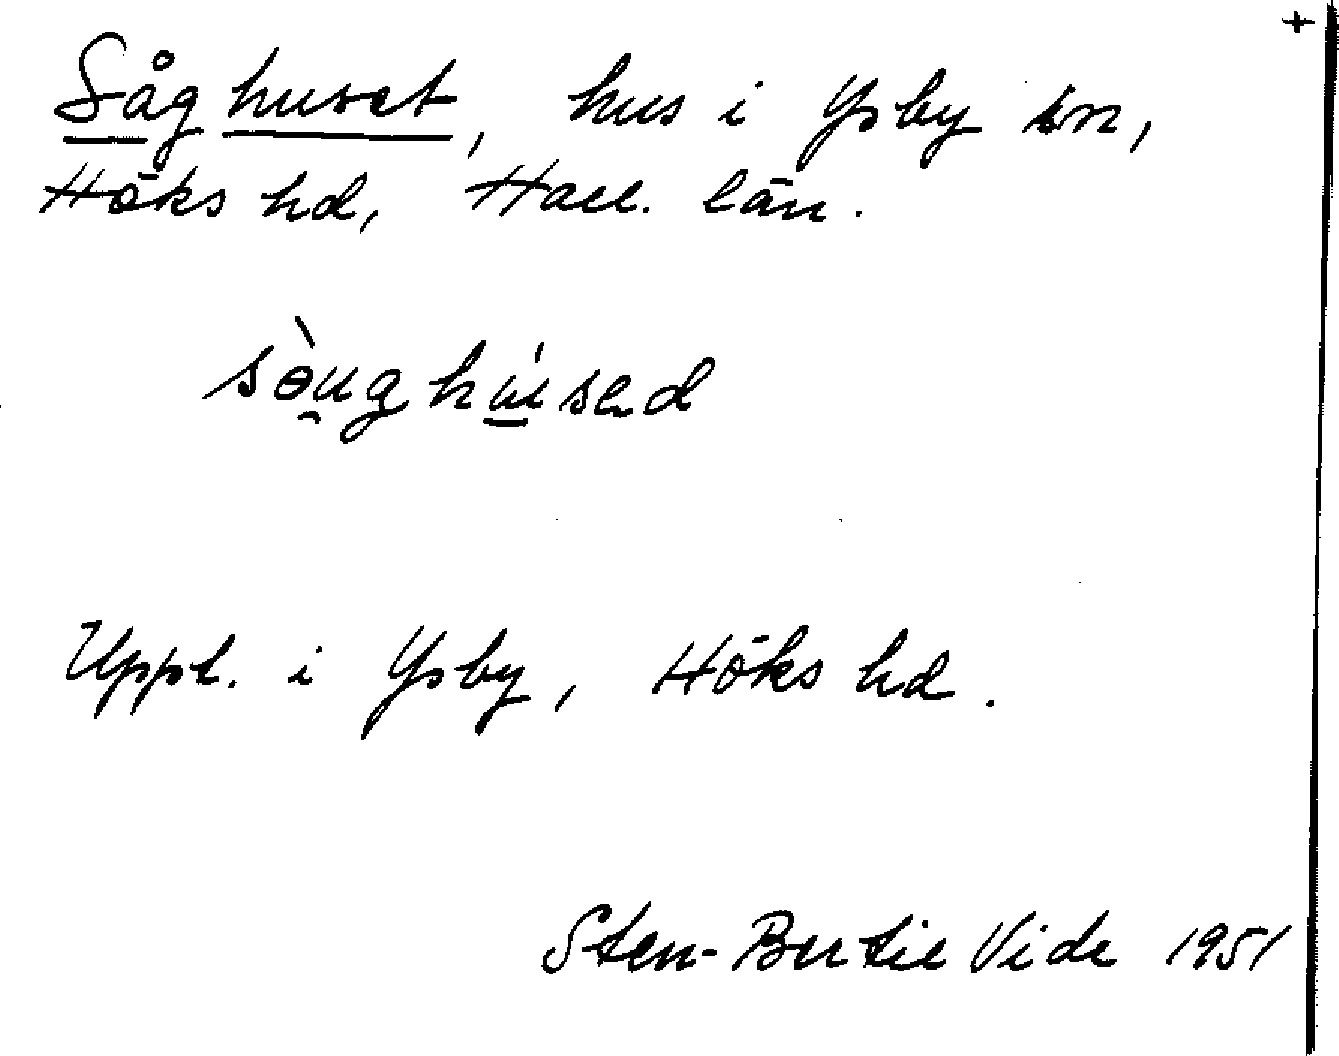 +
Såghuset, hus i Ysby sn,
Höks hd, Hall. län.
sòughúsed
Uppt. i Ysby, Höks hd.
Sten-Bertil Vide 1951